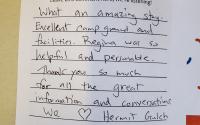 What an amazing stay.
Excellent camp ground and
facilities. Regina was so
helpful and personable.
Thank you so much
for all the great
information and conversations
We ♡ Hermit Gulch